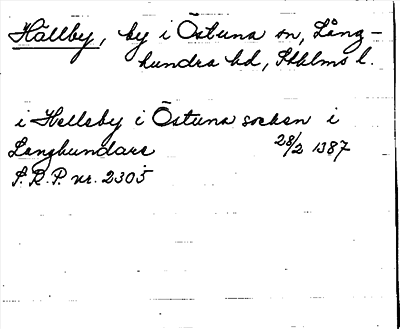 Hällby, by i Östuna sn, Lång-
hundra hd, Sthlms l.
i Helleby i Östuna socken i
Langhundare 28/2 1387
S.R.P. nr. 2305